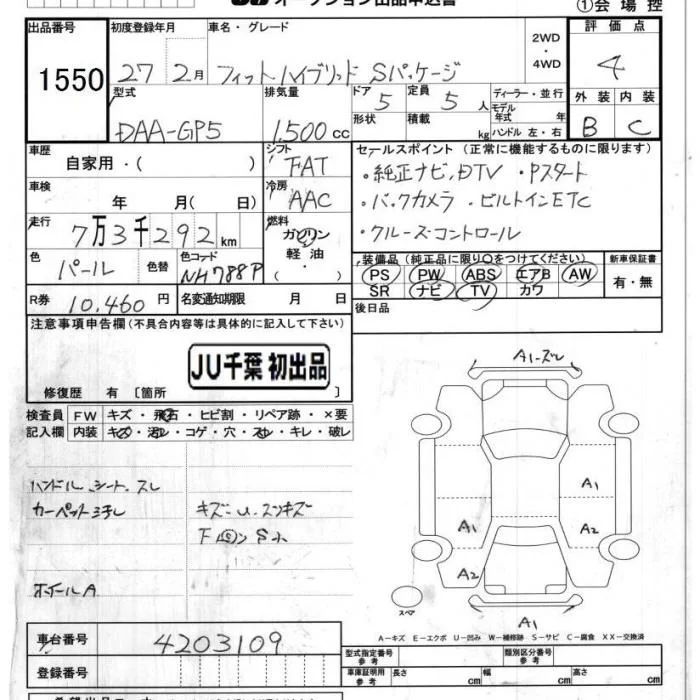 オークション出品申込書
①会場控
出品番号 1550
初度登録年月 27 2月
車名・グレード フィットハイブリッド Sパッケージ
2WD・4WD
評価点 4
外装 B 内装 C
型式 DAA-GP5
排気量 1,500 cc
ドア 5 定員 5 人
形状 積載 kg
ディーラー・並行
モデル年式 年
ハンドル 左・右
車歴 自家用・( )
シフト FAT
車検 年 月( 日)
冷房 AAC
走行 7万3千292km
燃料 ガソリン・軽油・( )
色 パール 色替 色コード NH788P
R券 10,460円 名変通知期限 月 日
セールスポイント(正常に機能するものに限ります)
。純正ナビ,DTV ・Pスタート
。バックカメラ ・ビルトインETC
・クルーズコントロール
装備品(純正品に限り○をつけてください)
新車保証書
PS PW ABS エアB AW
SR ナビ TV カワ
有・無
後日品
注意事項申告欄(不具合内容等は具体的に記入して下さい)
JU千葉 初出品
修復歴 有 〔箇所 〕
検査員記入欄
FW キズ・飛石・ヒビ割・リペア跡・×要
内装 キズ・汚レ・コゲ・穴・スレ・キレ・破レ
ハンドル シート スレ
カーペットヨゴレ
キズ・U・スリキズ
ホイールA
A1・スレ
A1
A1
A2
A2
A1
スペア
A-キズ E-エクボ U-凹み W-補修跡 S-サビ C-腐食 XX-交換済
車台番号 4203109
登録番号
型式指定番号 参考
類別区分番号 参考
車庫証明用 参考 長さ cm 幅 cm 高さ cm